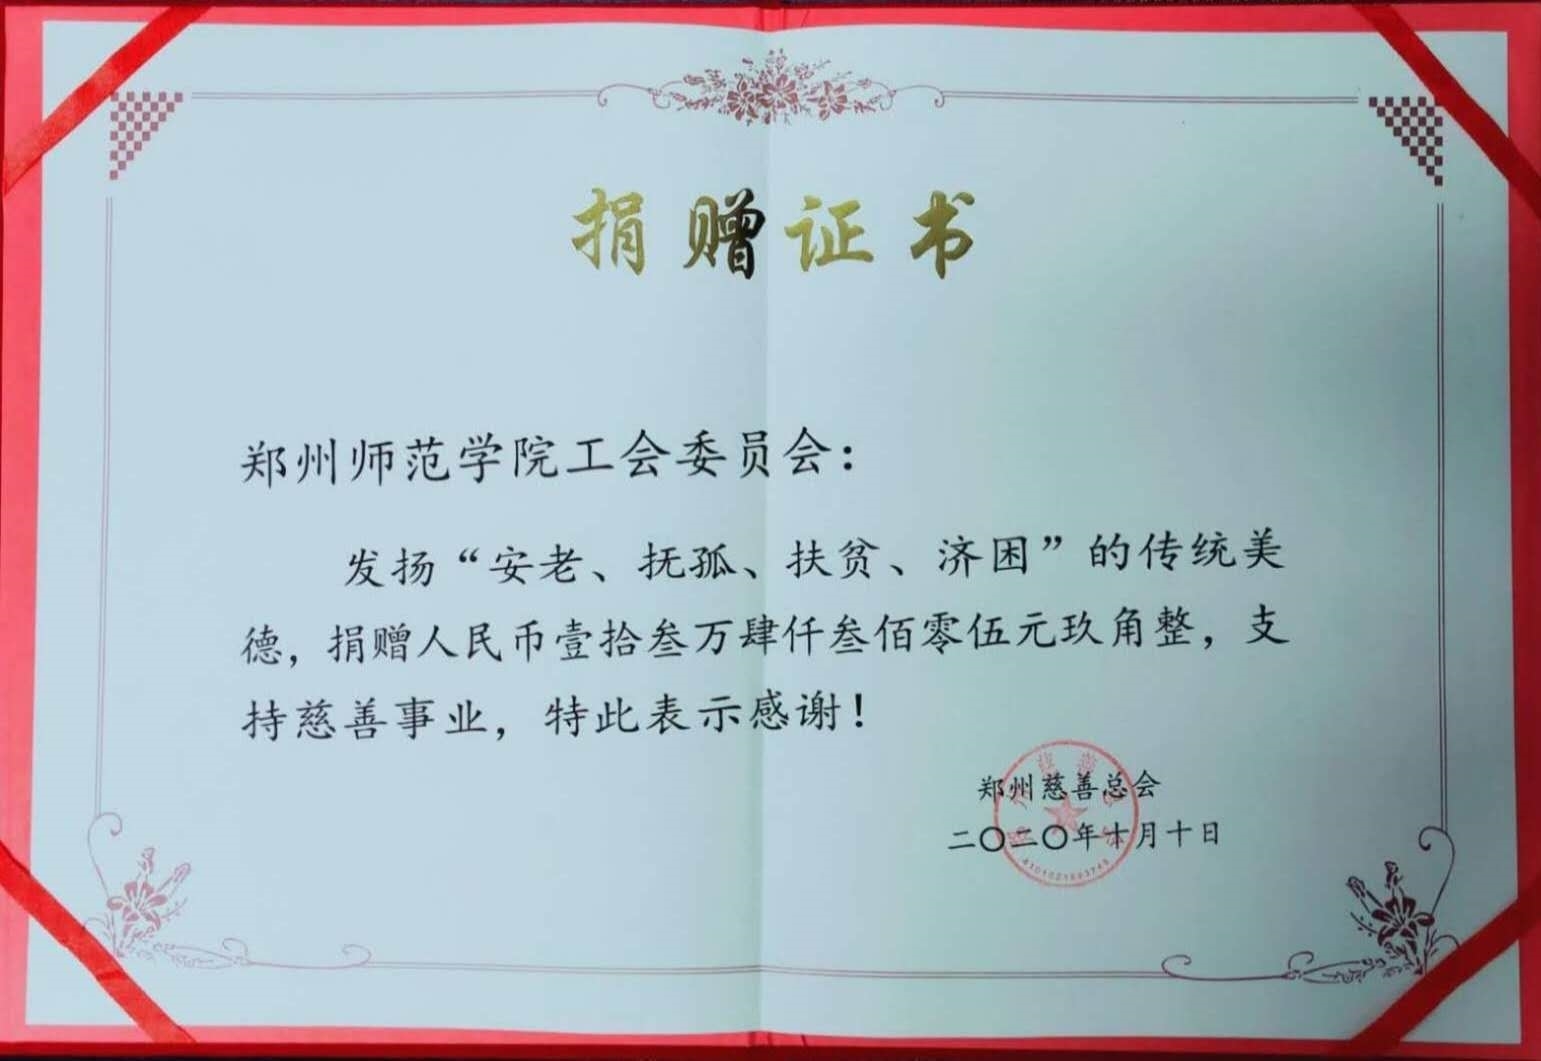 捐赠证书
郑州师范学院工会委员会：
发扬“安老、抚孤、扶贫、济困”的传统美
德，捐赠人民币壹拾叁万肆仟叁佰零伍元玖角整，支
持慈善事业，特此表示感谢！
郑州慈善总会
二〇二〇年十月十日